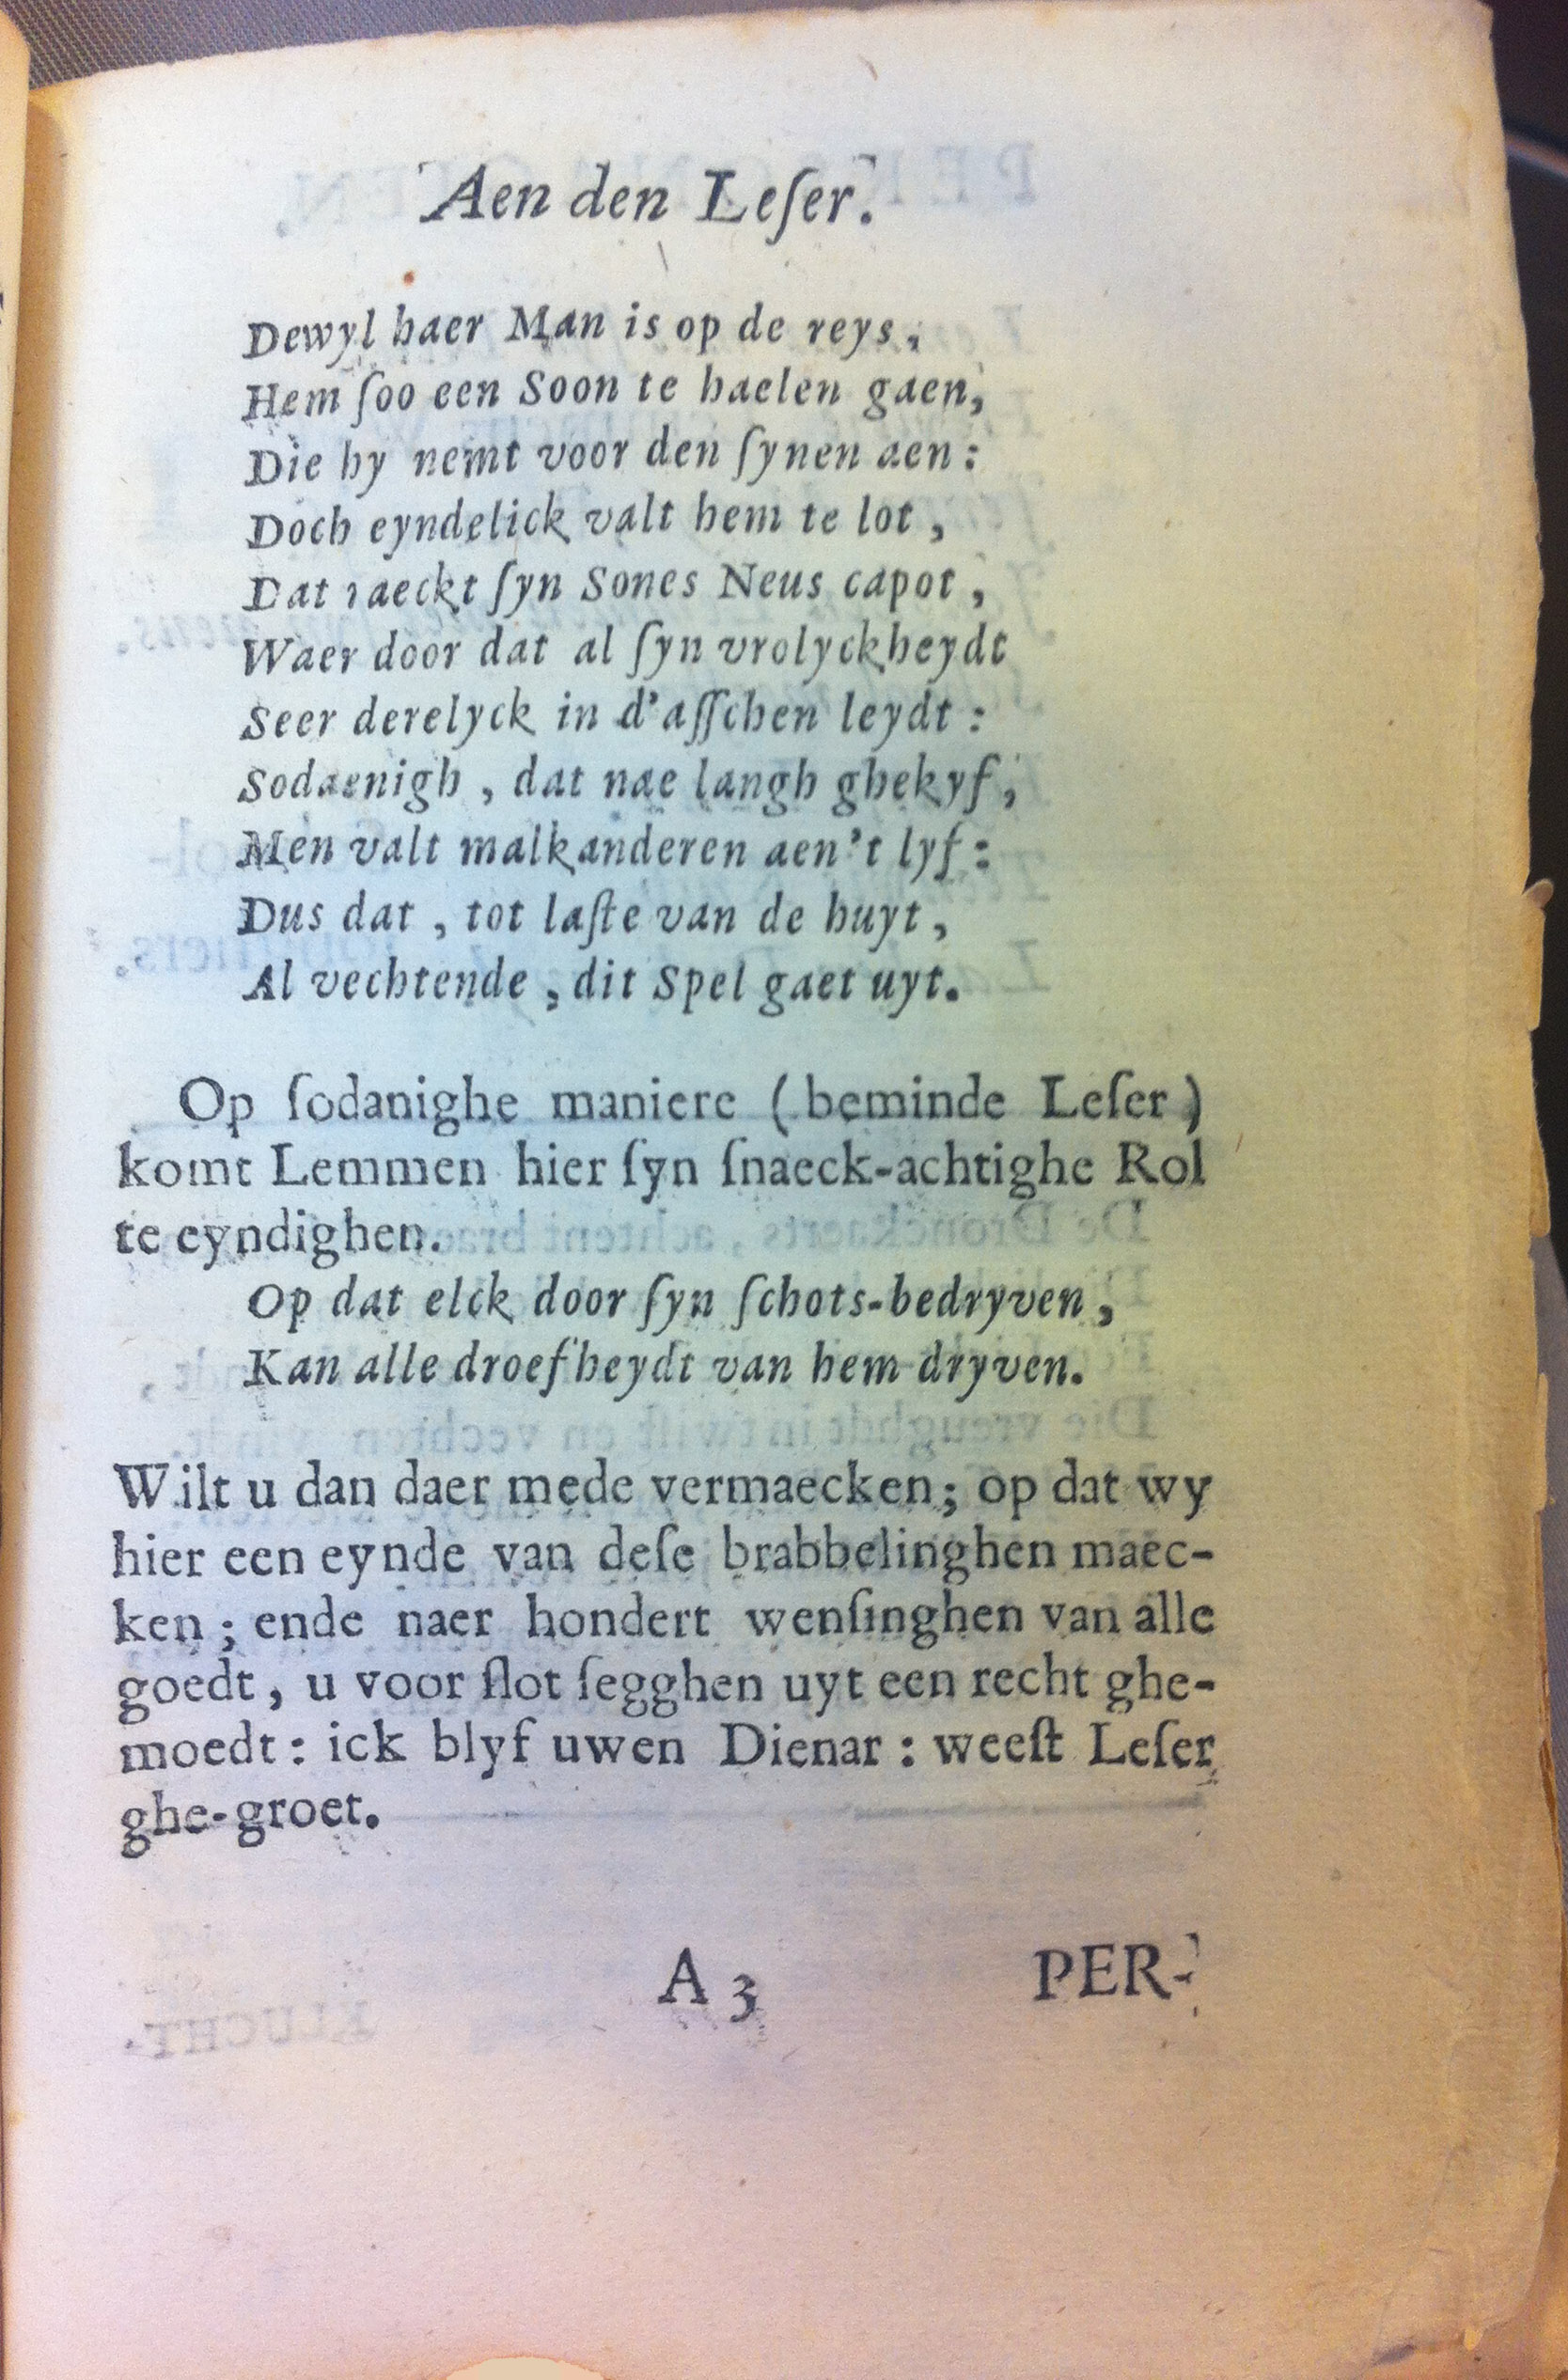 Aen den Leſer.
Dewyl haer Man is op de reys,
Hem ſoo een Soon te haelen gaen,
Die hy nemt voor den ſynen aen:
Doch eyndelick valt hem te lot,
Dat raeckt ſyn Sones Neus capot,
Waer door dat al ſyn vrolyckheydt
Seer derelyck in d'aſſchen leydt:
Sodaenigh, dat nae langh ghekyf,
Men valt malkanderen aen't lyf:
Dus dat, tot laſte van de huyt,
Al vechtende, dit Spel gaet uyt.
Op ſodanighe maniere (beminde Leſer)
komt Lemmen hier ſyn ſnaeck-achtighe Rol
te eyndighen.
Op dat elck door ſyn ſchots-bedryven,
Kan alle droefheydt van hem dryven.
Wilt u dan daer mede vermaecken; op dat wy
hier een eynde van deſe brabbelinghen maec-
ken; ende naer hondert wenſinghen van alle
goedt, u voor ſlot ſegghen uyt een recht ghe-
moedt: ick blyf uwen Dienar: weeſt Leſer
ghe-groet.
A 3 PER-